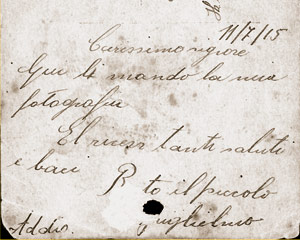 11/7/15
Carissimo signore
Qui ti mando la mia
fotografia
El ricevi tanti saluti
e baci
P to il piccolo
Guglielmo
Addio.